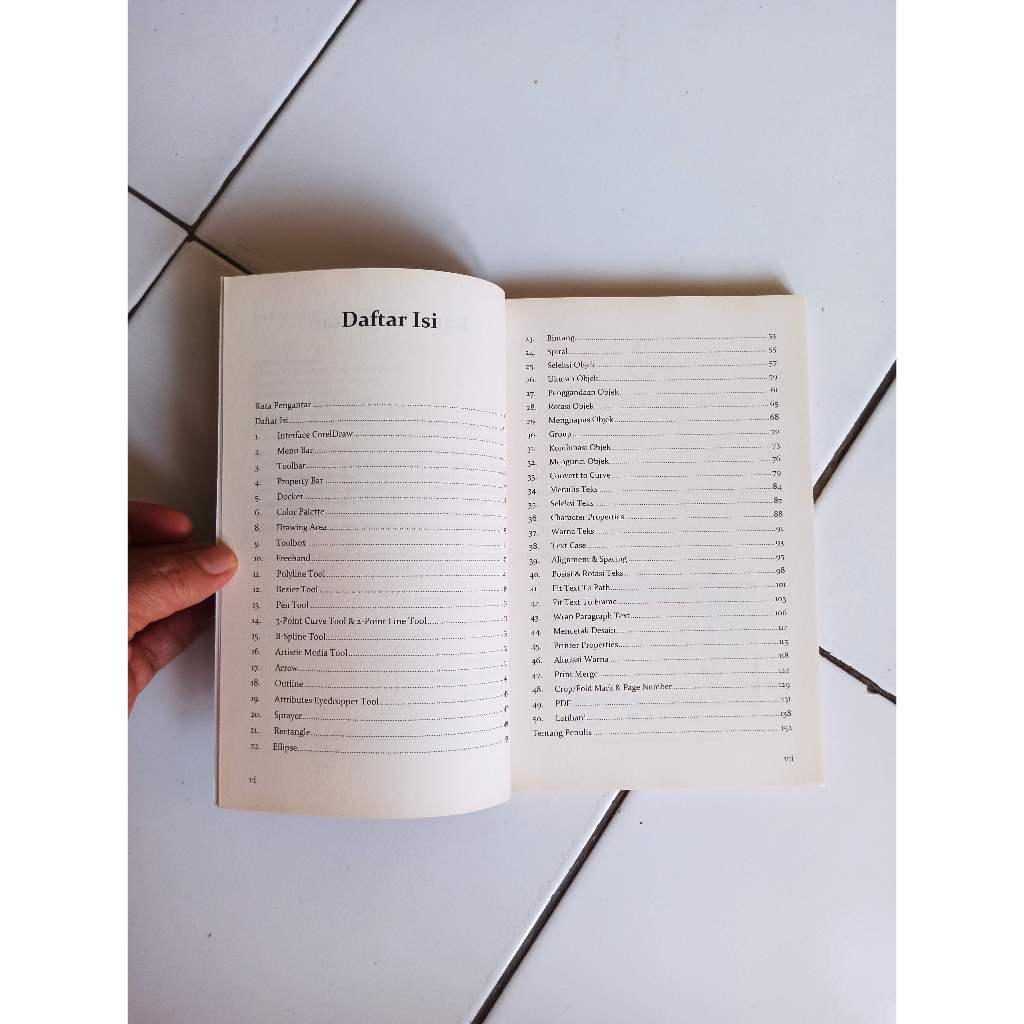 Daftar Isi
Kata Pengantar
Daftar Isi
1. Interface CorelDraw
2. Menu Bar
3. Toolbar
4. Property Bar
5. Docker
6. Color Palette
8. Drawing Area
9. Toolbox
10. Freehand
11. Polyline Tool
12. Bezier Tool
13. Pen Tool
14. 3-Point Curve Tool & 2-Point Line Tool
15. B-Spline Tool
16. Artistic Media Tool
17. Arrow
18. Outline
19. Attributes Eyedropper Tool
20. Sprayer
21. Rectangle
22. Ellipse
vi
23. Bintang 53
24. Spiral 55
25. Seleksi Objek 57
26. Ukuran Objek 59
27. Penggandaan Objek 61
28. Rotasi Objek 65
29. Menghapus Objek 68
30. Group 70
31. Kombinasi Objek 73
32. Mengunci Objek 76
33. Convert to Curve 79
34. Menulis Teks 84
35. Seleksi Teks 87
36. Character Properties 88
37. Warna Teks 91
38. Text Case 93
39. Alignment & Spacing 95
40. Posisi & Rotasi Teks 98
41. Fit Text To Path 101
42. Fit Text To Frame 103
43. Wrap Paragraph Text 106
44. Mencetak Desain 112
45. Printer Properties 115
46. Akurasi Warna 118
47. Print Merge 122
48. Crop/Fold Mark & Page Number 129
49. PDF 131
50. Latihan! 138
Tentang Penulis 152
vii